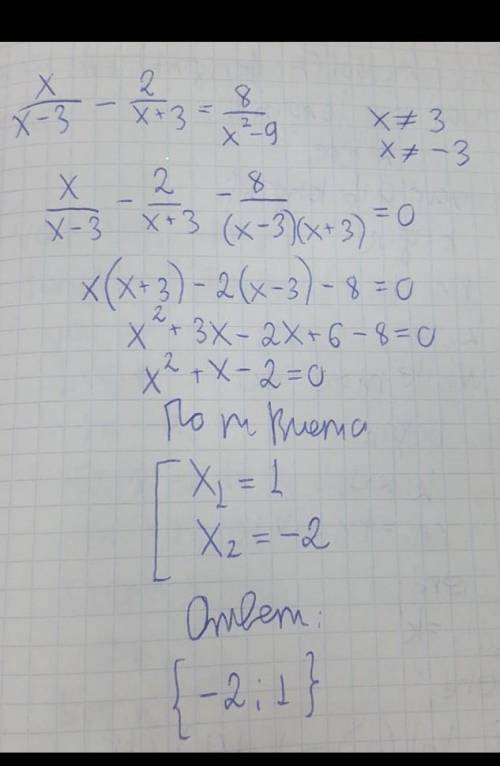 x/(x-3) - 2/(x+3) = 8/(x²-9)
x ≠ 3
x ≠ -3
x/(x-3) - 2/(x+3) - 8/((x-3)(x+3)) = 0
x(x+3) - 2(x-3) - 8 = 0
x² + 3x - 2x + 6 - 8 = 0
x² + x - 2 = 0
По т Виета
[ x₁ = 1
x₂ = -2
Ответ:
{-2; 1}